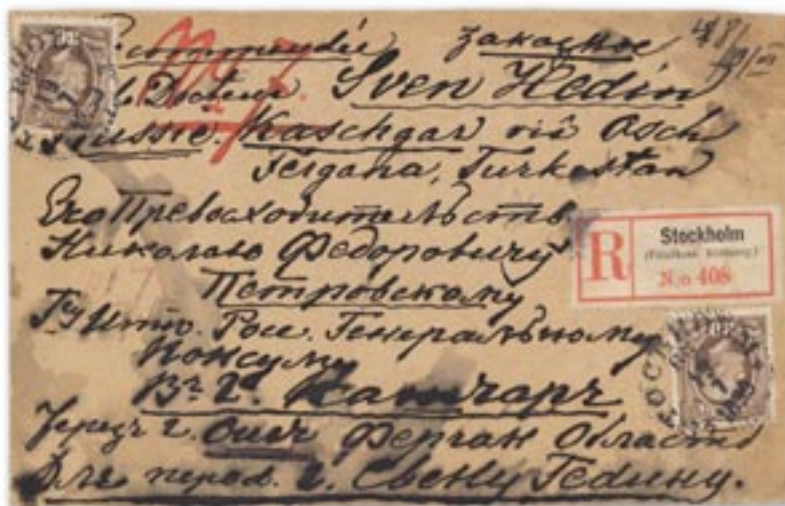 Recommandée Заказное
Docteur Sven Hedin
Russie. Kaschgar viâ Osch
Fergana, Turkestan
Его Превосходительств
Николаю Федоровичу
Петровскому
Росс. Генеральному
Консулу
Въ г. Кашгаръ
Черезъ г. Ошъ Ферган Область
Для перед. г. Свену Гедину.
R Stockholm
N:o 408